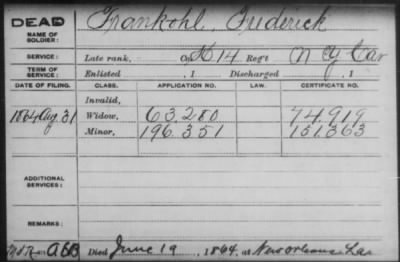 DEAD
NAME OF SOLDIER: Frankohl, Frederick
SERVICE: Late rank, Co. K 14 Reg't N Y Cav
TERM OF SERVICE: Enlisted , 1 Discharged , 1
DATE OF FILING. CLASS. APPLICATION NO. LAW. CERTIFICATE NO.
Invalid,
1864 Aug. 31 Widow, 63,280 74,919
Minor, 196,351 151,363
ADDITIONAL SERVICES:
REMARKS:
Died June 19, 1864, at New Orleans La